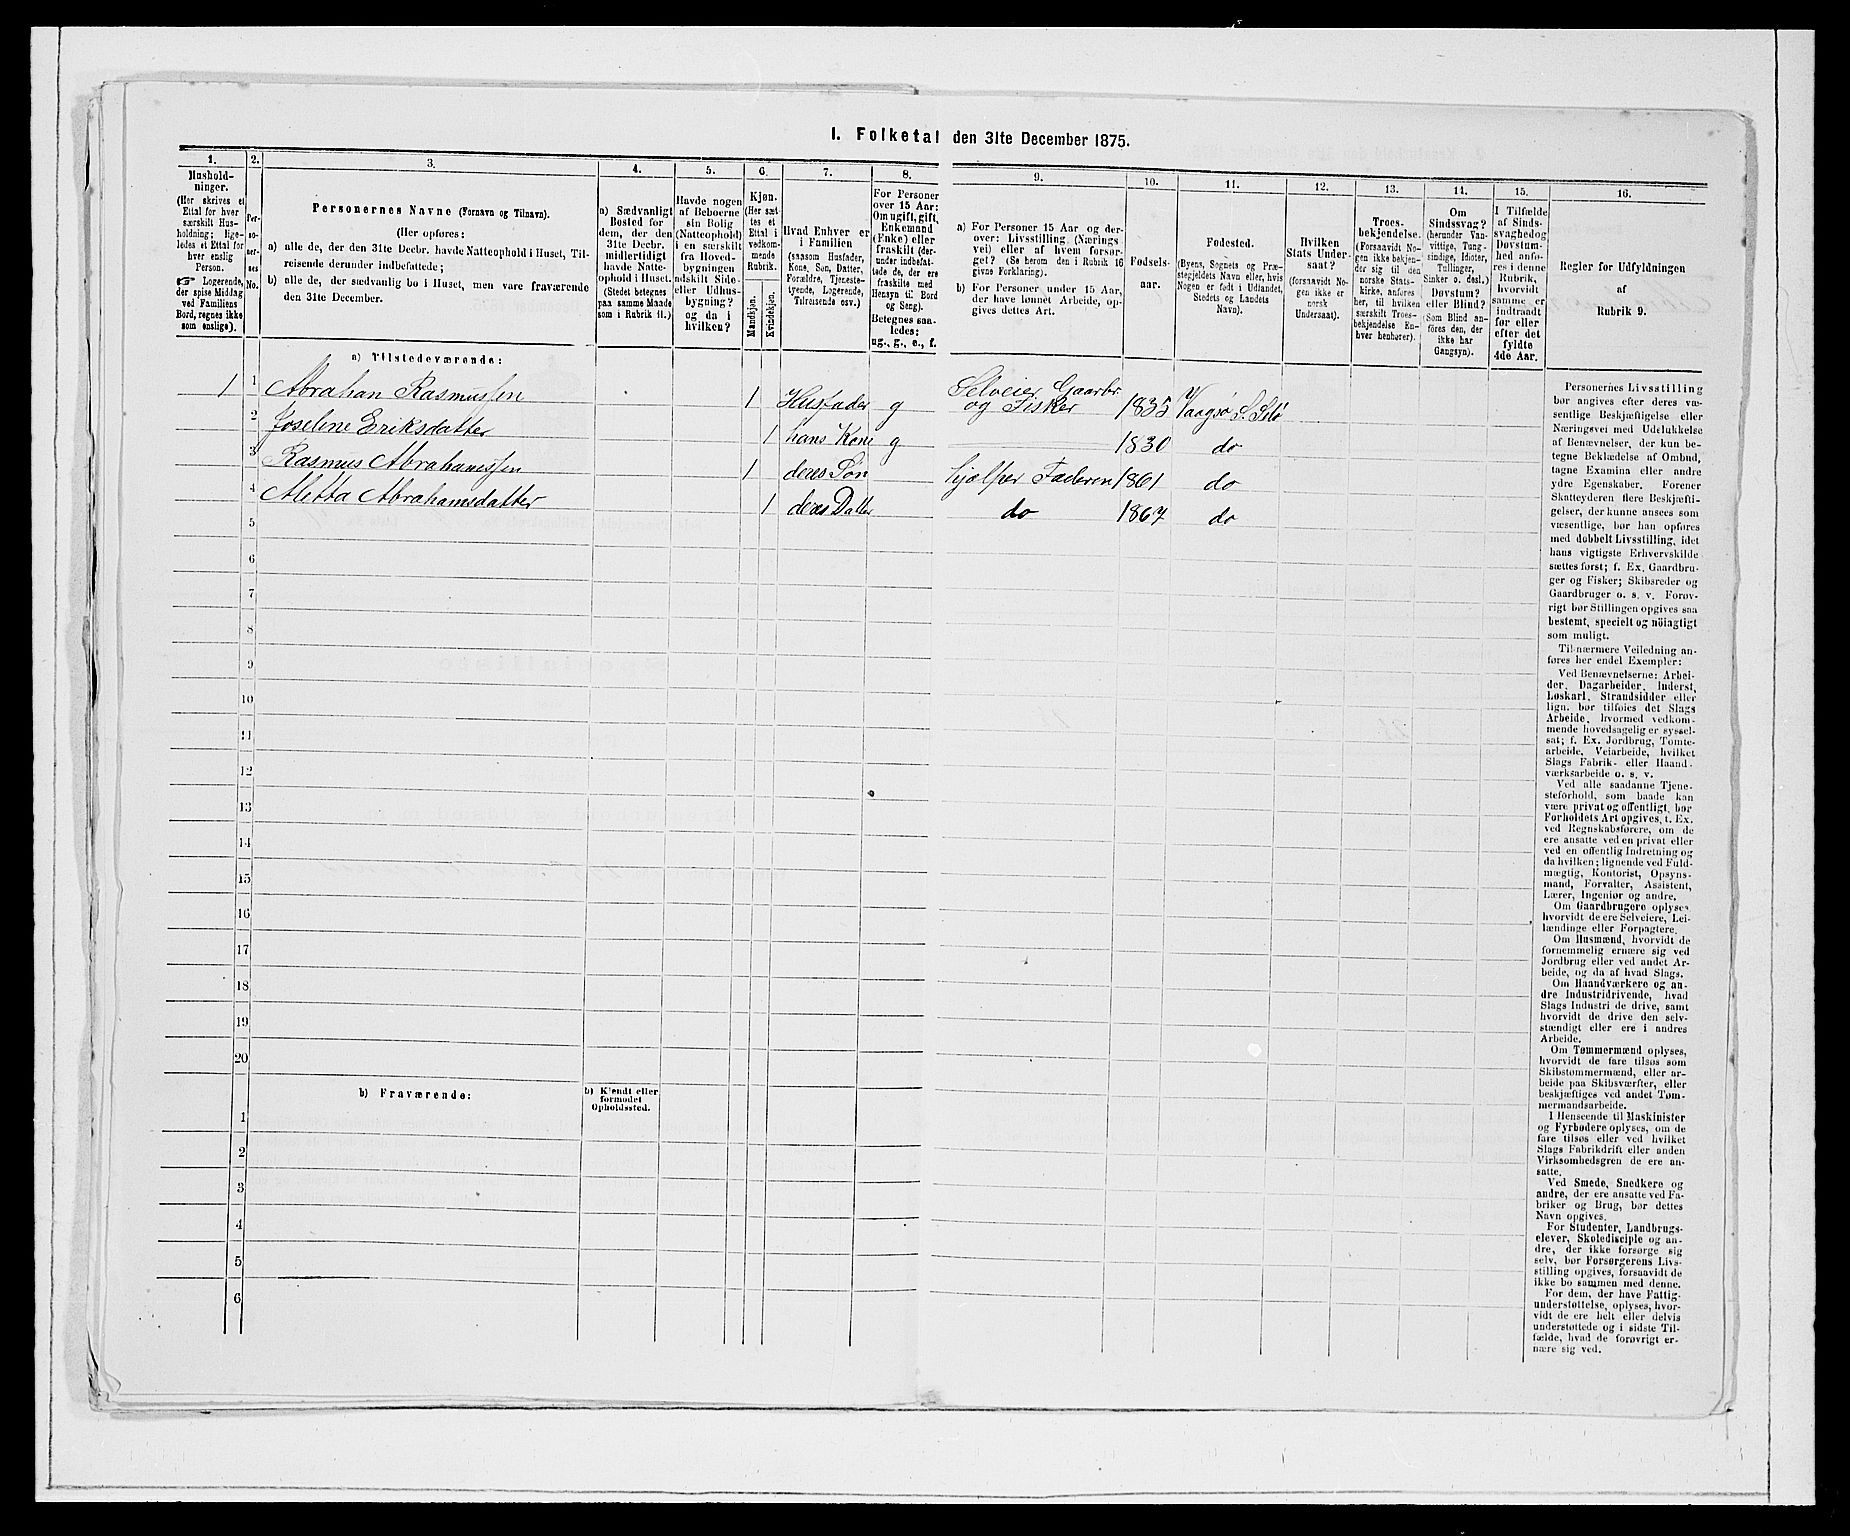 I. Folketal den 31te December 1875.
1. 2. 3. 4. 5. 6. 7. 8. 9. 10. 11. 12. 13. 14. 15. 16.
Hushold-
ninger.
(Her skrives et
Ettal for hver
særskilt Hus-
holdning; lige-
ledes et Ettal for
hver enslig
Person.
☞ Logerende,
der spise Middag
ved Familiens
Bord, regnes ikke
som enslige).
Per-
so-
ner-
nes
No.
Personernes Navne (Fornavn og Tilnavn).
(Her opføres:
a) alle de, der den 31te Decbr. havde Natteophold i Huset, Til-
reisende derunder indbefattede;
b) alle de, der sædvanlig bo i Huset, men vare fraværende
den 31te December.
a) Sædvanligt
Bosted for
dem, der den
31te Decbr.
midlertidigt
havde Natte-
ophold i Huset.
(Stedet betegnes
paa samme Maade
som i Rubrik 11.)
Havde nogen
af Beboerne
sin Bolig
(Natteophold)
i en særskilt
fra Hoved-
bygningen
adskilt Side-
eller Udhus-
bygning?
og da i
hvilken?
Kjøn.
(Her sæt-
tes et
Ettal i
vedkom-
mende
Rubrik.
Mandkjøn.
Kvindekjøn.
Hvad Enhver er
i Familien
(saasom Husfader,
Kone, Søn, Datter,
Forældre, Tjeneste-
tyende, Logerende,
Tilreisende osv.)
For Personer
over 15 Aar:
Om ugift, gift,
Enkemand
(Enke) eller
fraskilt (der-
under indbefat-
tede de, der ere
fraskilte med
Hensyn til Bord
og Seng).
Betegnes saa-
ledes:
ug., g., e., f.
a) For Personer 15 Aar og der-
over: Livsstilling (Nærings-
vei) eller af hvem forsør-
get? (Se herom den i Rubrik 16
givne Forklaring).
b) For Personer under 15 Aar,
der have lønnet Arbeide, op-
gives dettes Art.
Fødsels-
aar.
Fødested.
(Byens, Sognets og Præ-
stegjeldets Navn eller, hvis
Nogen er født i Udlandet,
Stedets og Landets
Navn).
Hvilken
Stats Under-
saat?
(forsaavidt No-
gen ikke er
norsk
Undersaat).
Troes-
bekjendelse.
(Forsaavidt No-
gen ikke bekjen-
der sig til den
norske Stats-
kirke, anføres
her, til hvilken
særskilt Troes-
bekjendelse En-
hver henhører).
Om
Sindssvag?
(herunder Van-
vittige, Tung-
sindige, Idioter,
Tullinger,
Sinker o. desl.)
Døvstum?
eller Blind?
(Som Blind an-
føres den, der
ikke har
Gangsyn).
I Tilfælde
af Sinds-
svaghed og
Døvstum-
hed anfø-
res i denne
Rubrik,
hvorvidt
samme er
indtraadt
før eller
efter det
fyldte
4de Aar.
Regler for Udfyldningen
af
Rubrik 9.
a) Tilstedeværende:
1 1 Abrahan Rasmussen 1 Husfader g Selveier Gaardbr og Fisker 1835 Vaagsø S. Selø
2 Joseline Eriksdatter 1 hans Kone g 1830 do
3 Rasmus Abrahamssen 1 deres Søn hjælper Faderen 1861 do
4 Aletta Abrahamsdatter 1 deres Datter do 1867 do
5
6
7
8
9
10
11
12
13
14
15
16
17
18
19
20
b) Fraværende:
b) Kjendt eller
formodet
Opholdssted.
1
2
3
4
5
6
Personernes Livsstilling
bør angives efter deres væ-
sentlige Beskjæftigelse eller
Næringsvei med Udelukkelse
af Benævnelser, der kun be-
tegne Beklædelse af Ombud,
tagne Examina eller andre
ydre Egenskaber. Forener
Skatteyderen flere Beskjæfti-
gelser, der kunne ansees som
væsentlige, bør han opføres
med dobbelt Livsstilling, idet
hans vigtigste Erhvervskilde
sættes først; f. Ex. Gaardbru-
ger og Fisker; Skibsreder og
Gaardbruger o. s. v. Forøv-
rigt bør Stillingen opgives saa
bestemt, specielt og nöiagtigt
som muligt.
Til nærmere Veiledning an-
føres her endel Exempler:
Ved Benævnelserne: Arbei-
der, Dagarbeider, Inderst,
Løskarl, Strandsidder eller
lign. bør tilføies det Slags
Arbeide, hvormed vedkom-
mende hovedsagelig er syssel-
sat; f. Ex. Jordbrug, Tomte-
arbeide, Veiarbeide, hvilket
Slags Fabrik- eller Haand-
værksarbeide o. s. v.
Ved alle saadanne Tjene-
steforhold, som baade kan
være privat og offentligt, bør
Forholdets Art opgives, t. Ex.
ved Regnskabsførere, om de
ere ansatte ved en privat eller
ved en offentlig Indretning og
da hvilken; lignende ved Fuld-
mægtig, Kontorist, Opsyns-
mand, Forvalter, Assistent,
Lærer, Ingeniør og andre.
Om Gaardbrugere oplyses,
hvorvidt de ere Selveiere, Lei-
lændinge eller Forpagtere.
Om Husmænd, hvorvidt de
fornemmelig ernære sig ved
Jordbrug eller ved andet Ar-
beide, og da af hvad Slags.
Om Haandværkere og an-
dre Industridrivende, hvad
Slags Industri de drive, samt
hvorvidt de drive den selv-
stændigt eller ere i andres
Arbeide.
Om Tømmermænd oplyses,
hvorvidt de fare tilsøs som
Skibstømmermænd, eller ar-
beide paa Skibsværfter, eller
beskjæftiges ved andet Tøm-
mermandsarbeide.
I Henseende til Maskinister
og Fyrbødere oplyses, om de
fare tilsøs eller ved hvilket
Slags Fabrikdrift eller anden
Virksomhedsgren de ere an-
satte.
Ved Smede, Snedkere og
andre, der ere ansatte ved Fa-
briker og Brug, bør dettes
Navn opgives.
For Studenter, Landbrugs-
elever, Skoledisciple og an-
dre, der ikke forsørge sig
selv, bør Forsørgerens Livs-
stilling opgives, forsaavidt de
ikke bo sammen med denne.
For dem, der have Fattig-
understøttelse, oplyses, hvor-
vidt de ere helt eller delvis
understøttede og i sidste Til-
fælde, hvad de forøvrigt er-
nære sig ved.